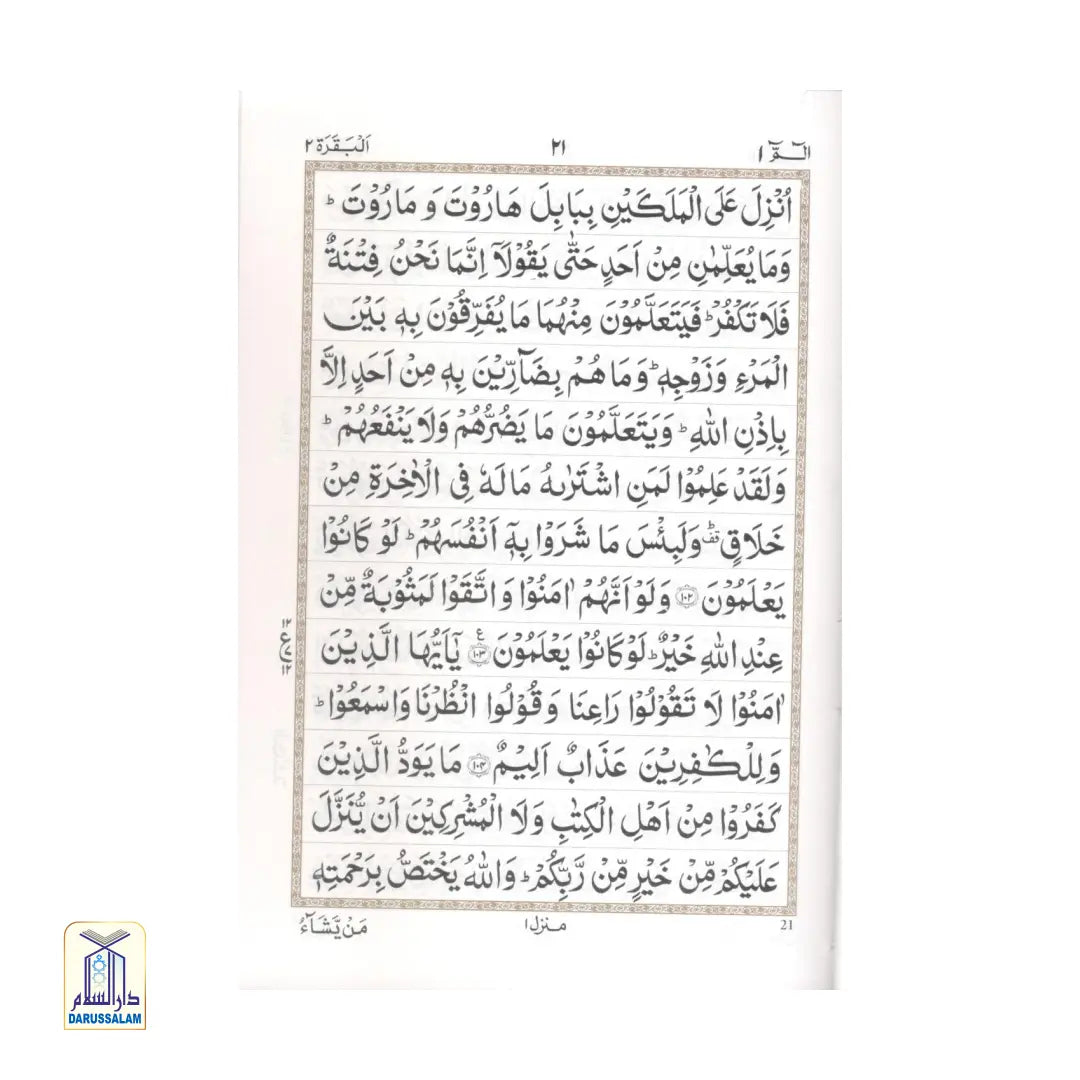 الٓمّٓ ١ ٢١ اَلْبَقَرَة ٢
اُنْزِلَ عَلَى الْمَلَكَيْنِ بِبَابِلَ هَارُوْتَ وَ مَارُوْتَ ؕ
وَمَا يُعَلِّمٰنِ مِنْ اَحَدٍ حَتّٰى يَقُوْلَاۤ اِنَّمَا نَحْنُ فِتْنَةٌ
فَلَا تَكْفُرْ ؕ فَيَتَعَلَّمُوْنَ مِنْهُمَا مَا يُفَرِّقُوْنَ بِهٖ بَيْنَ
الْمَرْءِ وَزَوْجِهٖ ؕ وَمَا هُمْ بِضَآرِّيْنَ بِهٖ مِنْ اَحَدٍ اِلَّا
بِاِذْنِ اللّٰهِ ؕ وَيَتَعَلَّمُوْنَ مَا يَضُرُّهُمْ وَلَا يَنْفَعُهُمْ ؕ
وَلَقَدْ عَلِمُوْا لَمَنِ اشْتَرٰىهُ مَا لَهٗ فِى الْاٰخِرَةِ مِنْ
خَلَاقٍ ؕقف وَلَبِئْسَ مَا شَرَوْا بِهٖۤ اَنْفُسَهُمْ ؕ لَوْ كَانُوْا
يَعْلَمُوْنَ ۝١٠٢ وَلَوْ اَنَّهُمْ اٰمَنُوْا وَاتَّقَوْا لَمَثُوْبَةٌ مِّنْ
عِنْدِ اللّٰهِ خَيْرٌ ؕ لَوْ كَانُوْا يَعْلَمُوْنَ ۝١٠٣ ع يٰۤاَيُّهَا الَّذِيْنَ
١٢ ع ٧ ١٢
اٰمَنُوْا لَا تَقُوْلُوْا رَاعِنَا وَقُوْلُوا انْظُرْنَا وَاسْمَعُوْا ؕ
وَلِلْكٰفِرِيْنَ عَذَابٌ اَلِيْمٌ ۝١٠٤ مَا يَوَدُّ الَّذِيْنَ
كَفَرُوْا مِنْ اَهْلِ الْكِتٰبِ وَلَا الْمُشْرِكِيْنَ اَنْ يُّنَزَّلَ
عَلَيْكُمْ مِّنْ خَيْرٍ مِّنْ رَّبِّكُمْ ؕ وَاللّٰهُ يَخْتَصُّ بِرَحْمَتِهٖ
21 منزل ١ مَنْ يَّشَآءُ
دارالسلام
DARUSSALAM